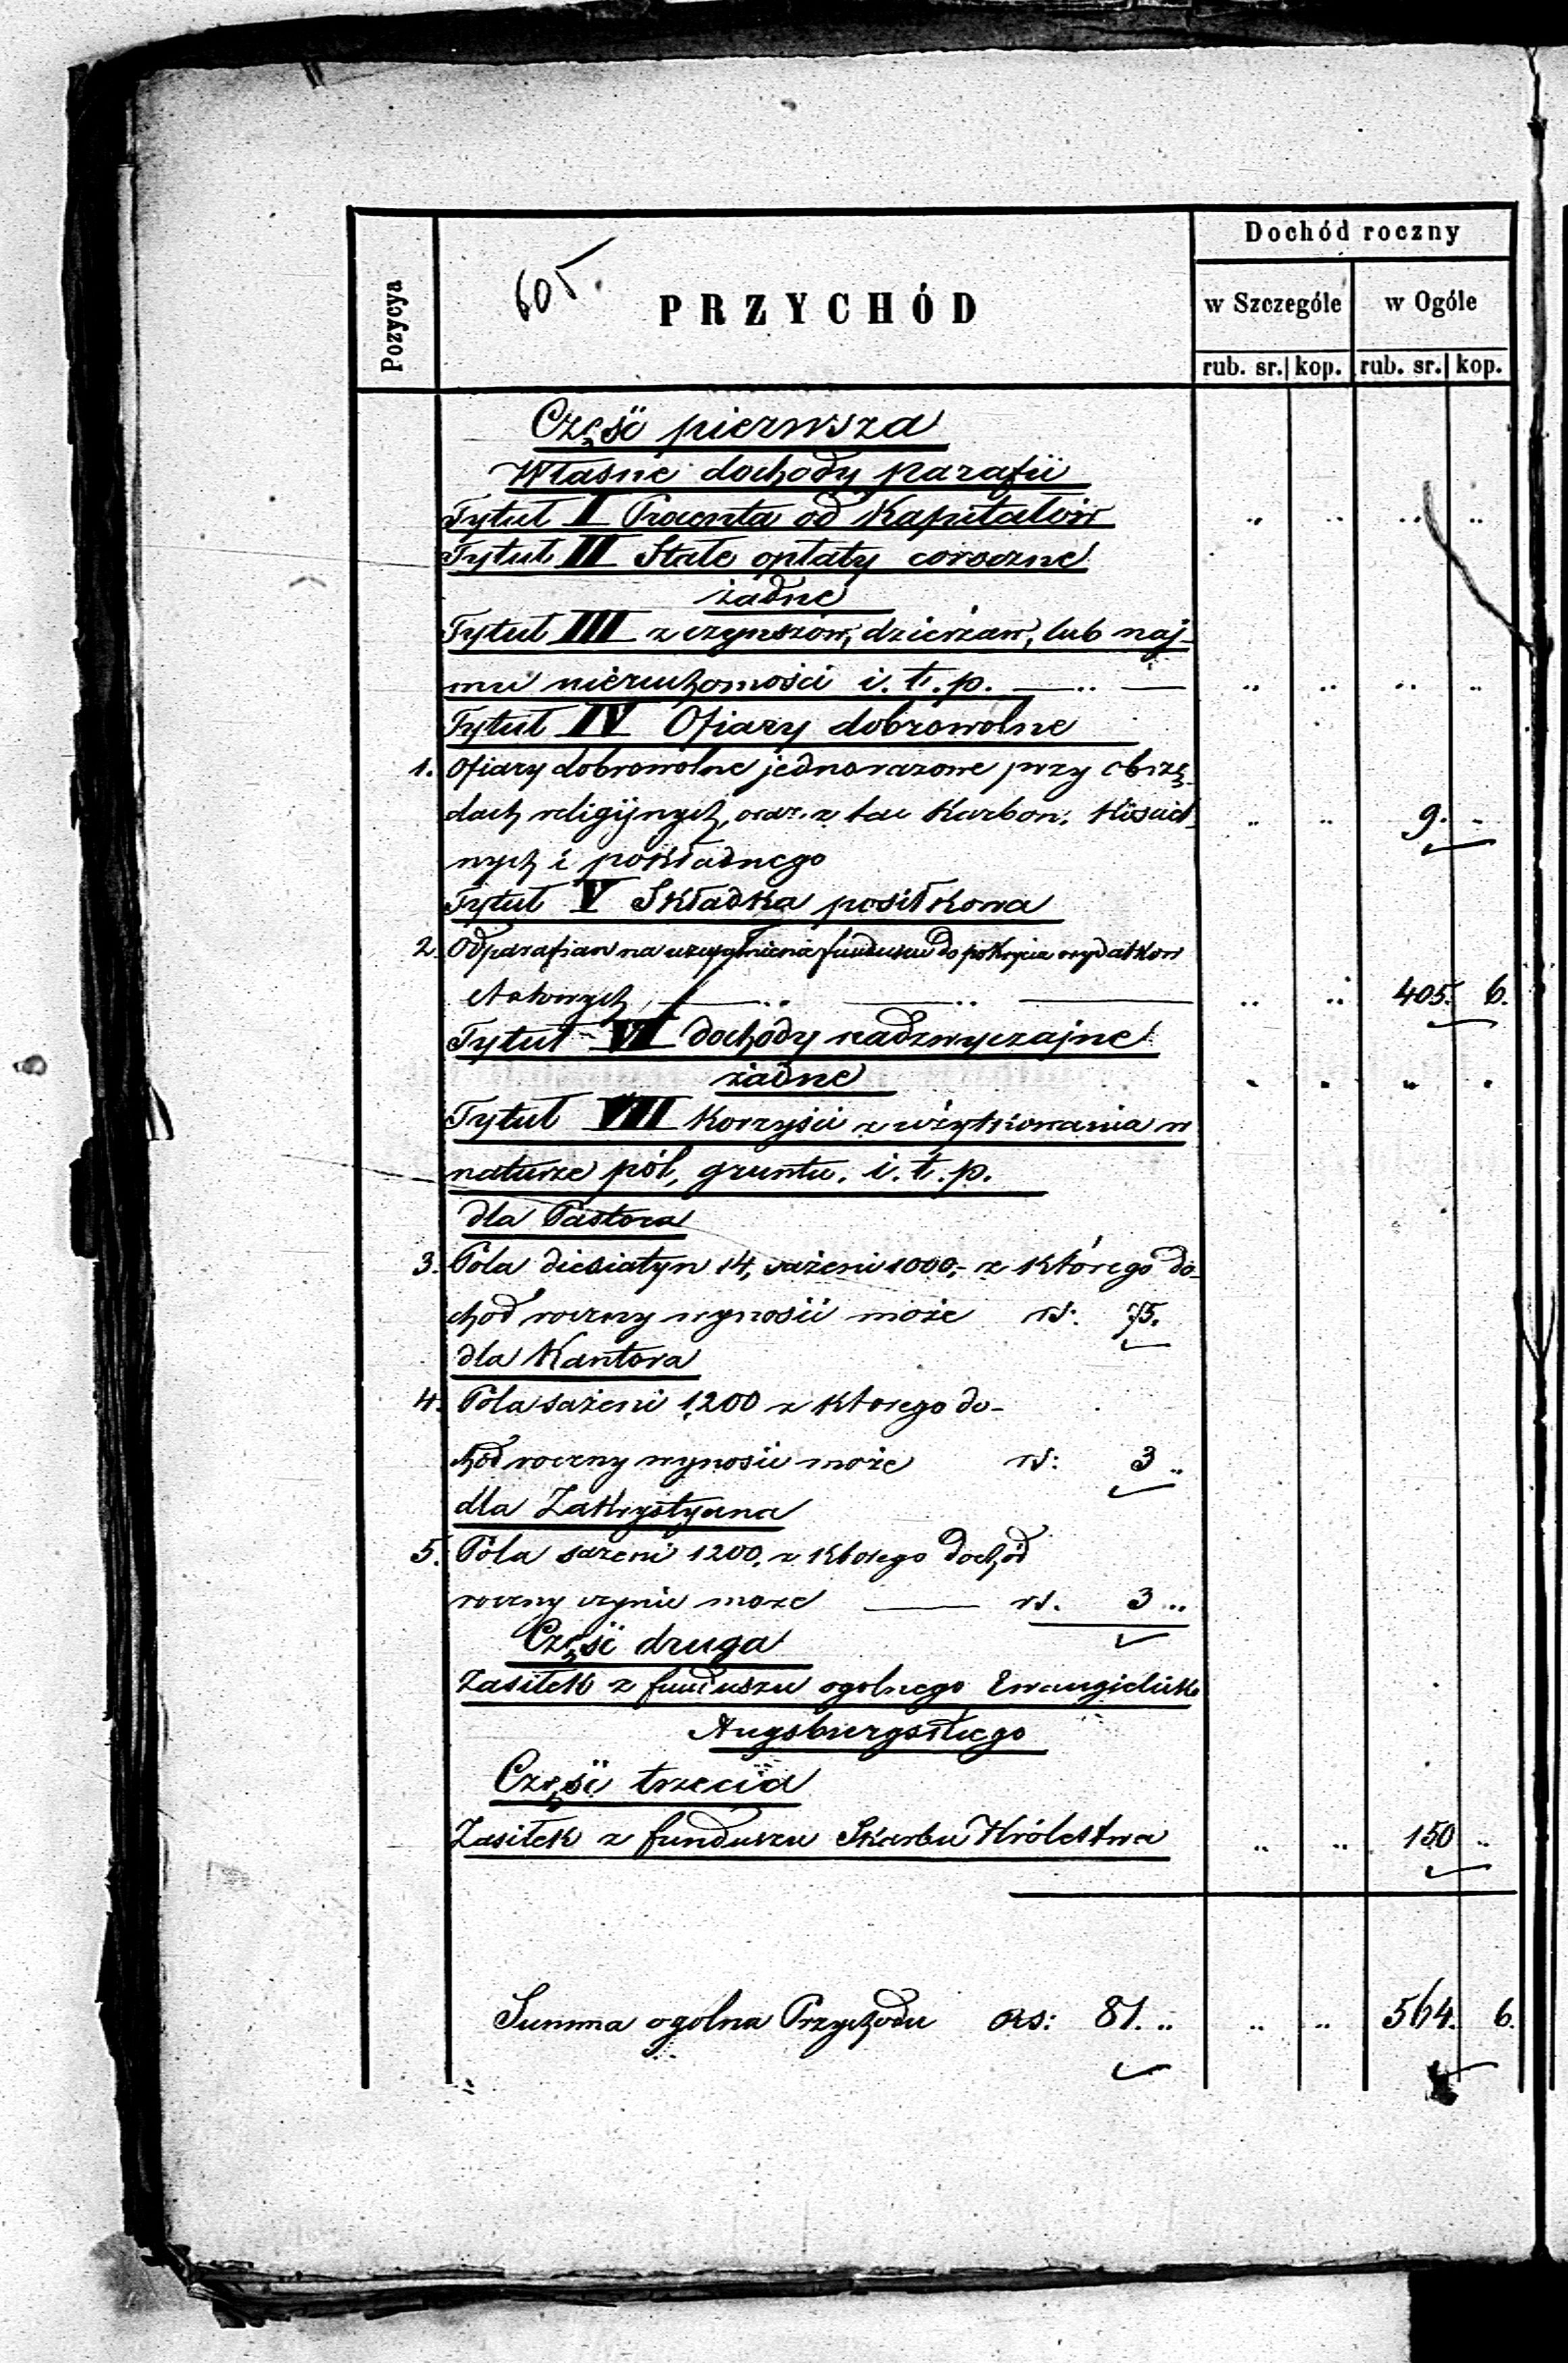 605.
Pozycya
PRZYCHÓD
Dochód roczny
w Szczególe w Ogóle
rub. sr. kop. rub. sr. kop.
Część pierwsza
Własne dochody parafii
Tytuł I Procenta od Kapitałów
Tytuł II Stałe opłaty coroczne
żadne
Tytuł III z czynszów, dzierżaw, lub naj-
mu nieruchomości i. t. p.
Tytuł IV Ofiary dobrowolne
1. Ofiary dobrowolne jednorazowe przy obrzę-
dach religijnych, oraz z tac Karbon. 9.
nych i pokładnego
Tytuł V Składka posiłkowa
2. Od parafian na uzupełnienie funduszu do pokrycia wydatków
etatowych 405. 6.
Tytuł VI dochody nadzwyczajne
żadne
Tytuł VII Korzyści z użytkowania w
naturze pól, gruntu, i. t. p.
dla Pastora
3. Pola diesiatyn 14, sażeni 1000,- z którego do-
chod roczny wynosić może rs: 75.
dla Kantora
4. Pola sażeni 1200 z ktorego do-
chód roczny wynosić może rs: 3 ..
dla Zakrystyana
5. Pola sażeni 1200. z ktorego dochód
roczny czynić może rs. 3 ..
Część druga
Zasiłek z funduszu ogolnego Ewangielicko
Augsburgskiego
Część trzecia
Zasiłek z funduszu Skarbu Królestwa 150 ..
Summa ogolna Przychodu Rs: 81. .. 564. 6.